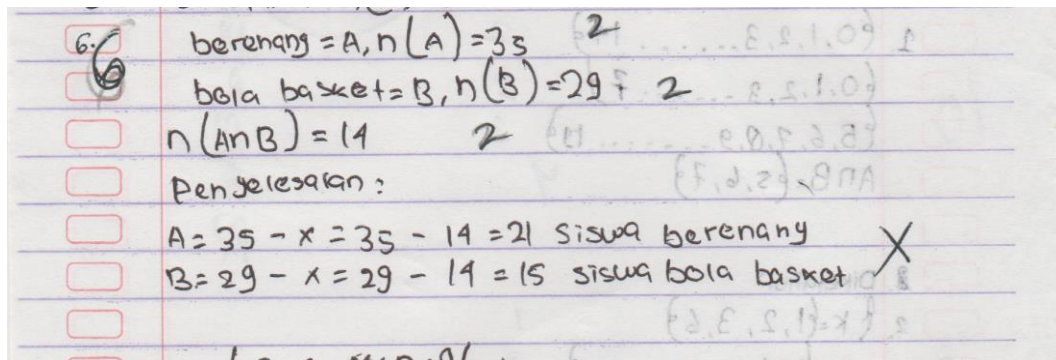 6. berenang = A, n(A) = 35 2
6
bola basket = B, n(B) = 29. 2
n(A∩B) = 14 2
Penyelesaian:
A = 35 - x = 35 - 14 = 21 siswa berenang
B = 29 - x = 29 - 14 = 15 siswa bola basket X